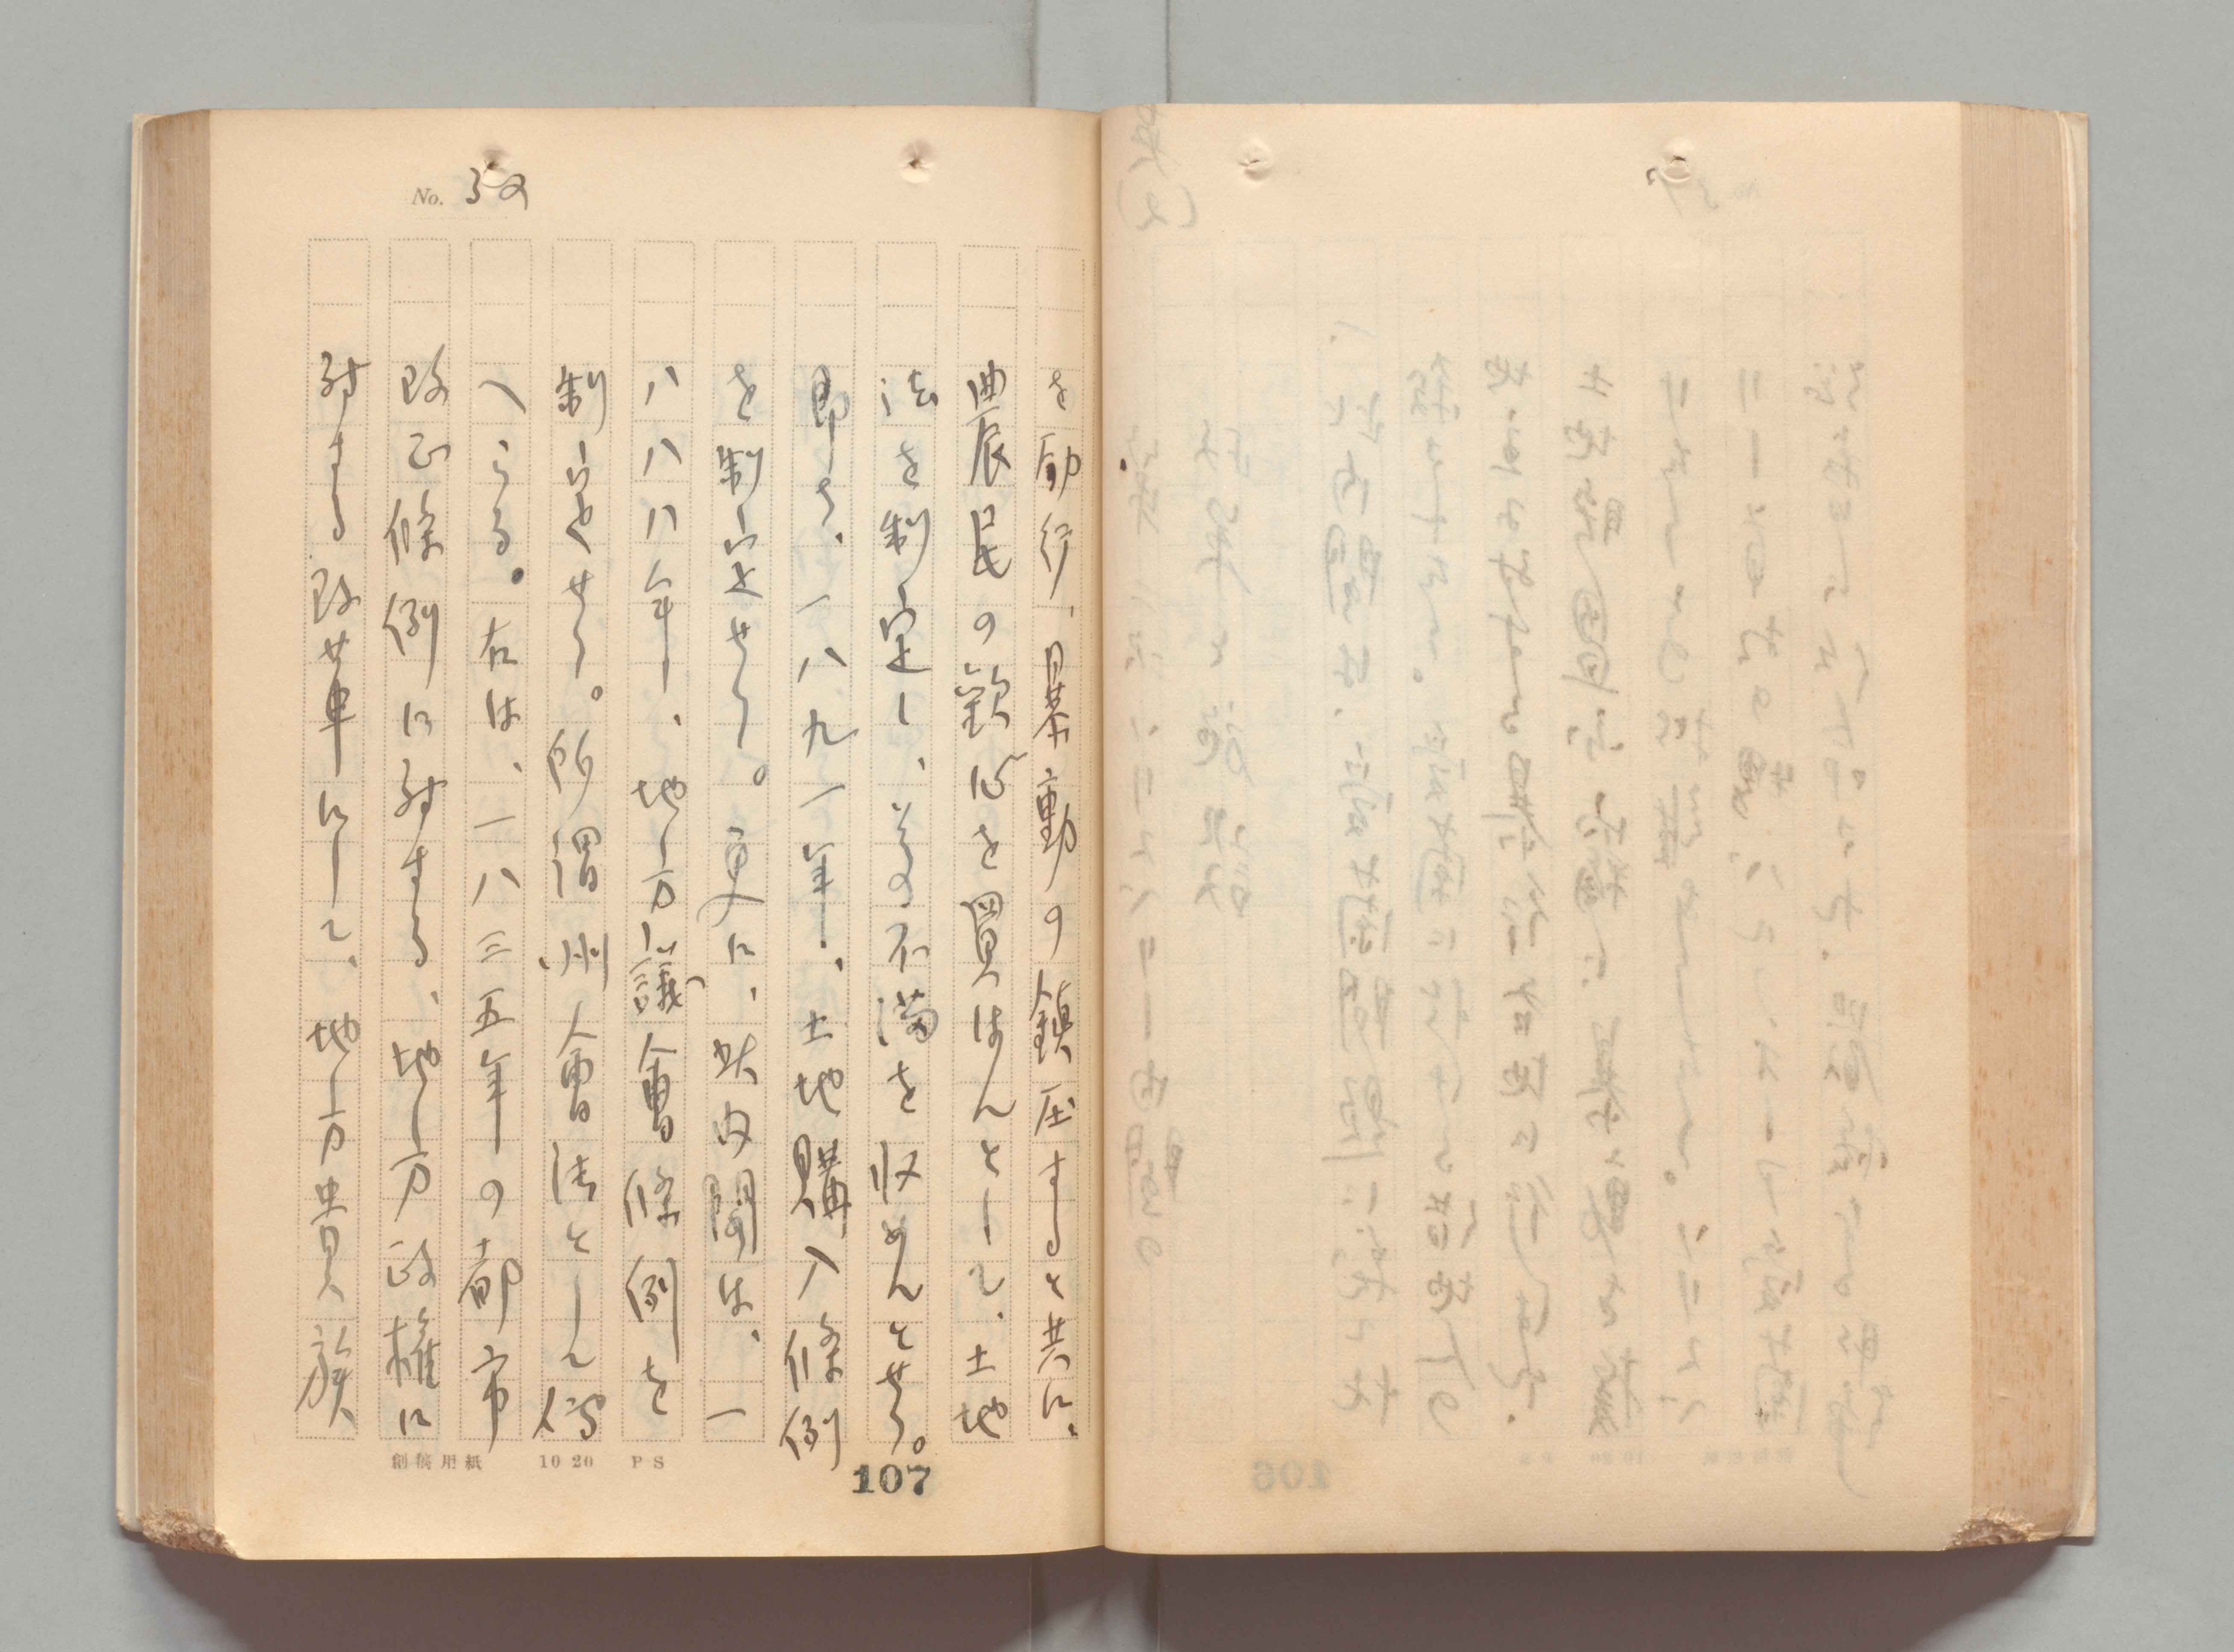 No. 32
を励行、暴動の鎮圧すると共に、
農民の歓心を買はんとして、土地
法を制定し、その不満を収めんとせり。
即ち、一八九一年、土地購入條例
を制定せり。更に、此内閣は、一
八八八年、地方議會條例を
制定せり。所謂州會法として傳
へらる。右は、一八三五年の都市
改正條例に対する、地方政権に
対する改革にして、地方貴族
創 用紙 10 20 PS
107